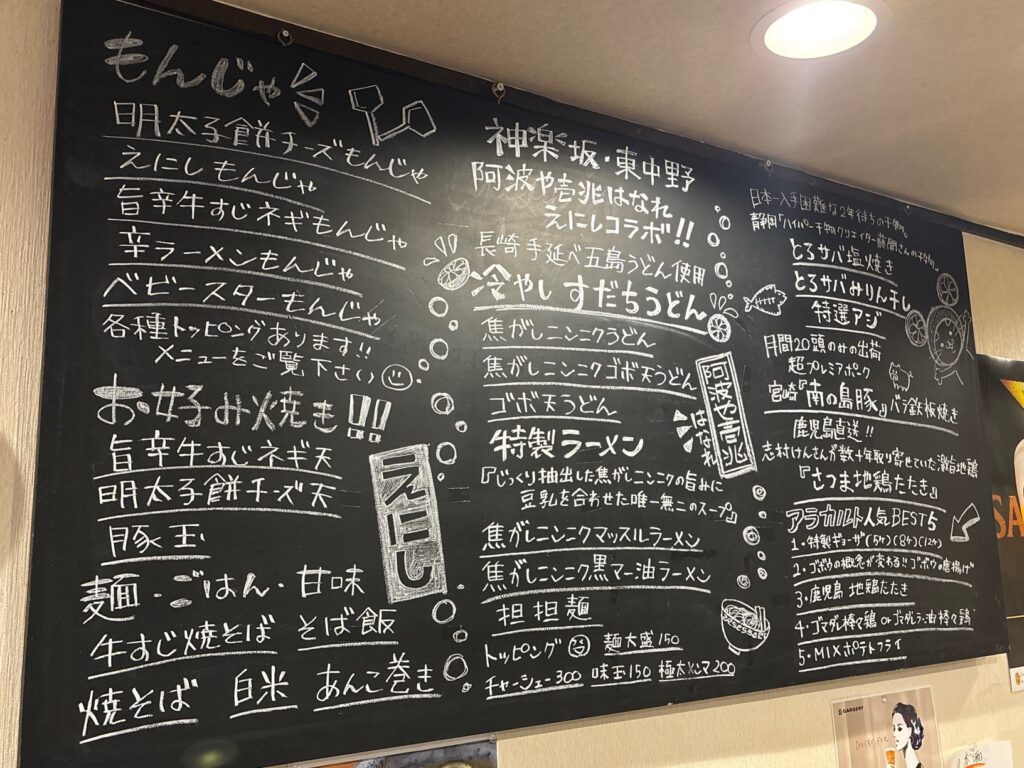 もんじゃ
明太子餅チーズもんじゃ
えにしもんじゃ
旨辛牛すじネギもんじゃ
辛ラーメンもんじゃ
ベビースターもんじゃ
各種トッピングあります!!
メニューをご覧下さい
お好み焼き!!
旨辛牛すじネギ天
明太子餅チーズ天
豚玉
えにし
麺・ごはん・甘味
牛すじ焼そば そば飯
焼そば 白米 あんこ巻き
神楽坂・東中野
阿波や壱兆はなれ
えにしコラボ!!
長崎手延べ五島うどん使用
冷やしすだちうどん
焦がしニンニクうどん
焦がしニンニクゴボ天うどん
ゴボ天うどん
特製ラーメン
『じっくり抽出した焦がしニンニクの旨みに
豆乳を合わせた唯一無二のスープ』
焦がしニンニクマッスルラーメン
焦がしニンニク黒マー油ラーメン
担担麺
トッピング 麺大盛150
チャーシュー300 味玉150 極太メンマ200
阿波や壱兆
はなれ
日本一入手困難な2年待ちの干物。
静岡「ハイパー干物クリエイター さんの干物。
とろサバ塩焼き
とろサバみりん干し
特選アジ
月間20頭のみの出荷
超プレミアポーク
宮崎『南の島豚』バラ鉄板焼き
鹿児島直送!!
志村けんさんが数十年取り寄せていた激旨地鶏
『さつま地鶏たたき』
アラカルト人気BEST5
1・特製ギョーザ(5ケ)(8ケ)(12ケ)
2・ゴボウの概念が変わる!!ゴボウの唐揚げ
3・鹿児島 地鶏たたき
4・ゴマダレ棒々鶏 or ゴマダレラー油棒々鶏
5・MIXポテトフライ
SA
GARGERY